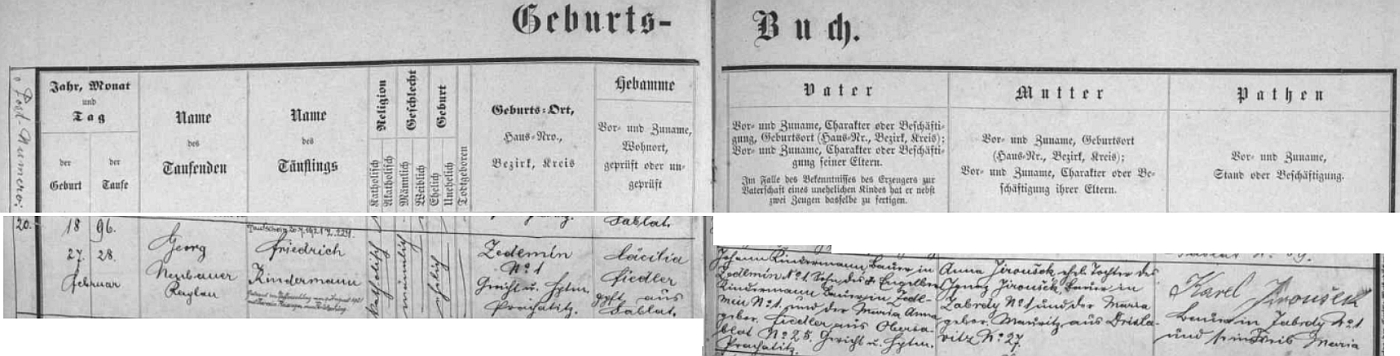 Geburts-Buch.
Jahr, Monat
und
Tag
der
Geburt
der
Taufe
Name
des
Taufenden
Name
des
Täuflings
Religion
Katholisch
Akatholisch
Geschlecht
Männlich
Weiblich
Geburt
Ehelich
Unehelich
Todtgeboren
Geburts-Ort,
Haus-Nro.,
Bezirk, Kreis
Hebamme
Vor- und Zuname,
Wohnort,
geprüft oder un-
geprüft
Vater
Vor- und Zuname, Charakter oder Beschäfti-
gung, Geburtsort (Haus-Nr., Bezirk, Kreis);
Vor- und Zuname, Charakter oder Beschäfti-
gung seiner Eltern.
Im Falle des Bekenntnisses des Erzeugers zur
Vaterschaft eines unehelichen Kindes hat er nebst
zwei Zeugen dasselbe zu fertigen.
Mutter
Vor- und Zuname, Geburtsort
(Haus-Nr., Bezirk, Kreis);
Vor- und Zuname, Charakter oder Be-
schäftigung ihrer Eltern.
Pathen
Vor- und Zuname,
Stand oder Beschäftigung.
20.
18 96.
27. 28.
Februar
Georg
Neubauer
Friedrich
Kindermann
katholisch
männlich
ehelich
Zedlemin
No 1
Gericht u. Hptm.
Prachatitz.
Sablat.
Cäcilia
Fiedler
gpft aus
Sablat.
Johann Kindermann Bauer in
Zedlmin No 1 Sohn des Engelbert
Kindermann Bauer in Zedl-
min No 1. und der Maria Anna
gebor. Fiedler aus Obersa-
blat No 25. Gericht u. Hptm.
Prachatitz.
Anna Jiroušek ehel. Tochter des
Jiroušek Bauer in
Zabrdy No 1 und der Maria
gebor. aus
No 27.
Karel Jiroušek
Bauer in Zabrdy No 1
und Maria